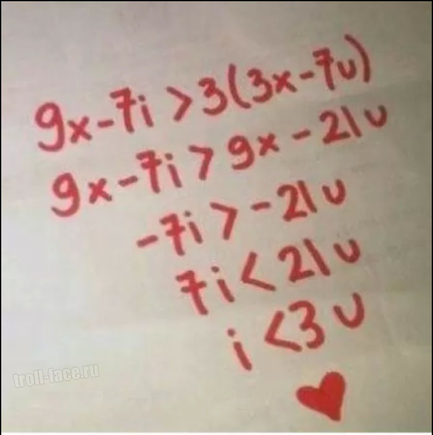 9x-7i > 3(3x-7u)
9x-7i > 9x-21u
-7i > -21u
7i < 21u
i <3 u
troll-face.ru